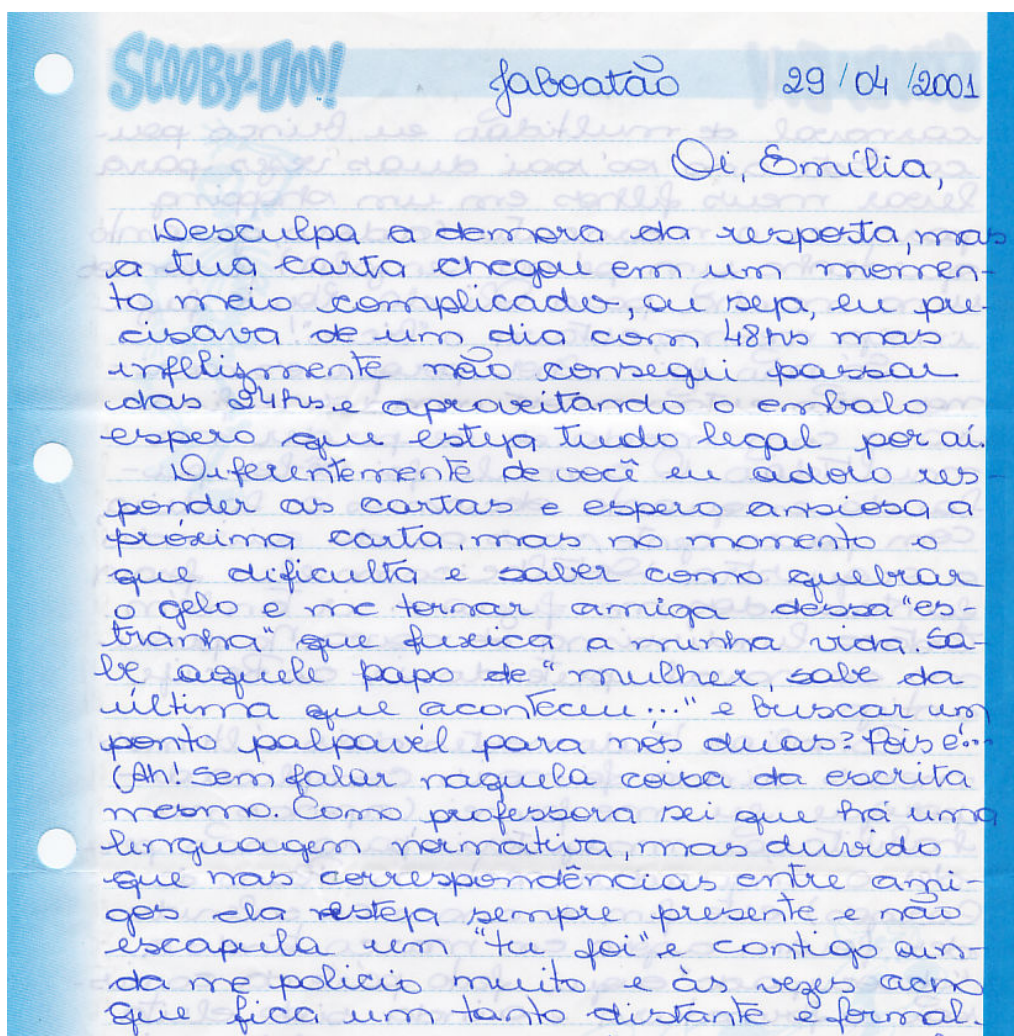 SCOOBY-DOO!
Jaboatão 29/04/2001
Oi, Emília,
Desculpa a demora da resposta, mas
a tua carta chegou em um momen-
to meio complicado, ou seja, eu pre-
cisava de um dia com 48hs mas
infelizmente não consegui passar
das 24hs. e aproveitando o embalo
espero que esteja tudo legal por aí.
Diferentemente de você eu adoro res-
ponder as cartas e espero ansiosa a
próxima carta, mas no momento o
que dificulta e saber como quebrar
o gelo e me tornar amiga dessa "es-
tranha" que fuxica a minha vida. Sa-
be aquele papo de "mulher, sabe da
última que aconteceu..." e buscar um
ponto palpavél para nós duas? Pois é...
(Ah! Sem falar naquela coisa da escrita
mesmo. Como professora sei que há uma
linguagem normativa, mas duvido
que nas correspondências entre ami-
gos ela esteja sempre presente e não
escapula um "tu foi" e contigo ain-
da me policio muito e às vezes acho
que fica um tanto distante e formal.